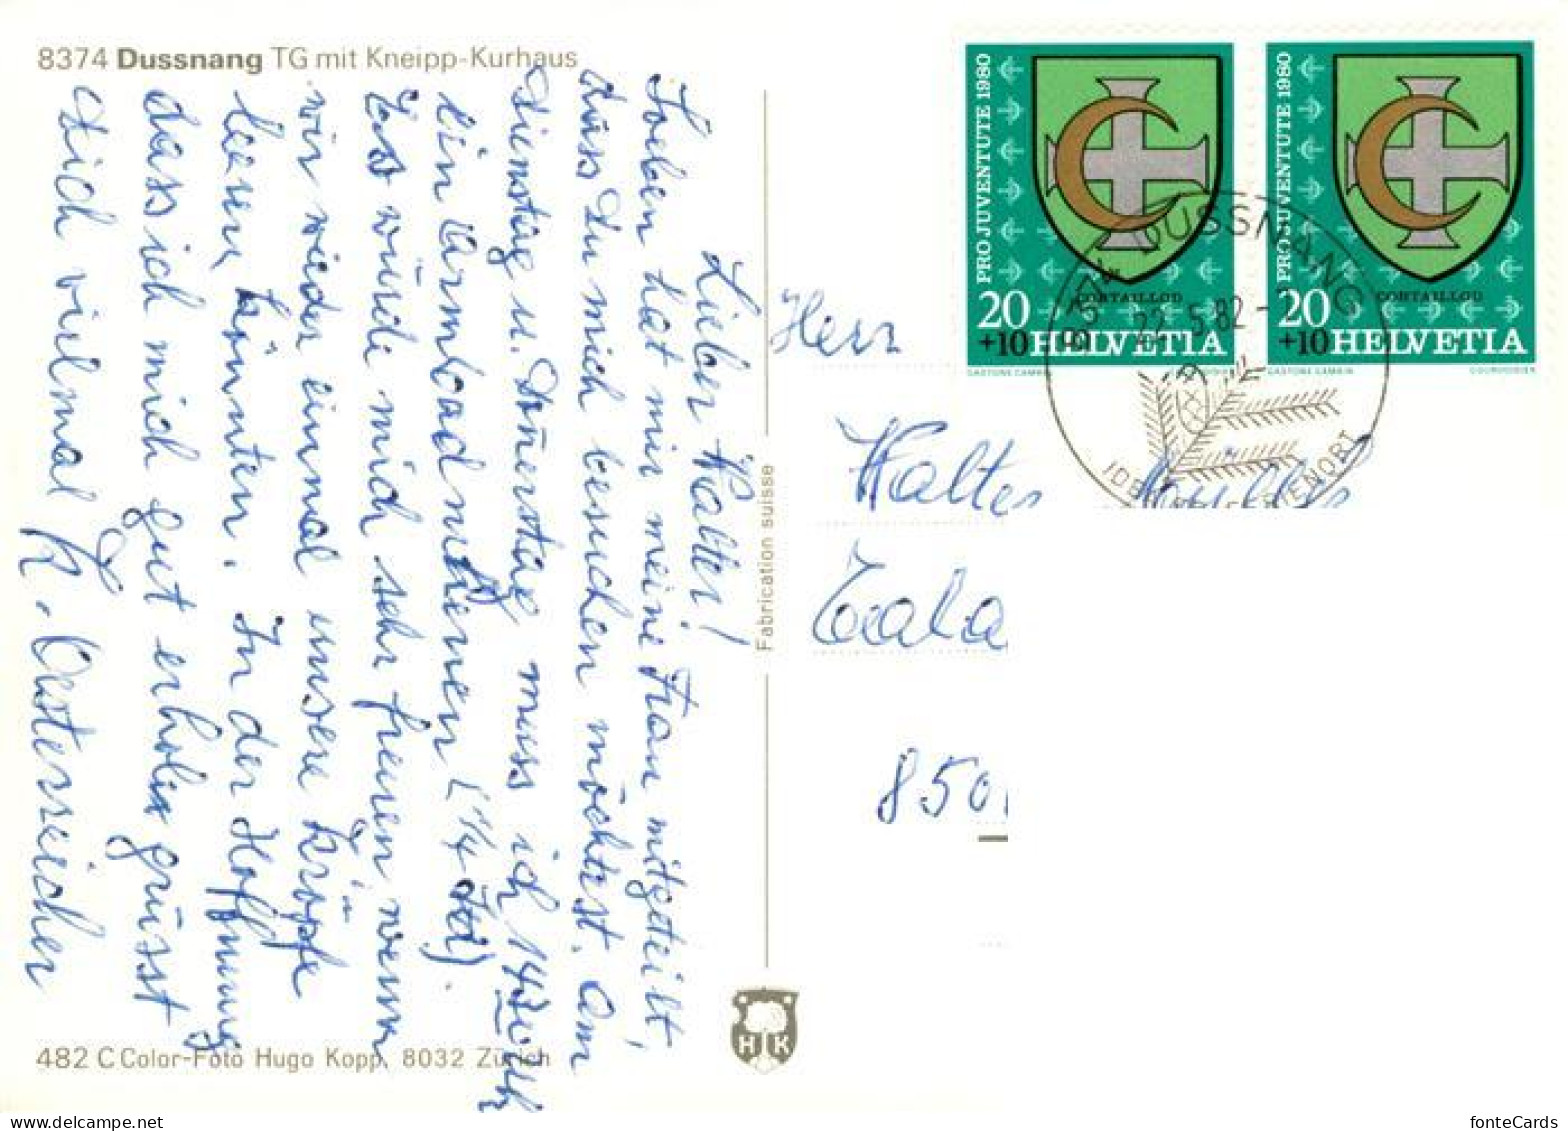 8374 Dussnang TG mit Kneipp-Kurhaus
Lieber Walter!
Soeben hat mir meine Frau mitgeteilt,
dass Du mich besuchen möchtest. Am
Dienstag u. Donnerstag muss ich 1430 Uhr
ein Armbad nehmen (1/4 Std).
Es würde mich sehr freuen wenn
wir wieder einmal unsere Kröpfe
leeren könnten. In der Hoffnung
dass ich mich gut erhole grüsst
Dich vielmal K. Oesterreicher
482 C Color-Foto Hugo Kopp, 8032 Zürich
Fabrication suisse
H K
PRO JUVENTUTE 1980
CORTAILLOD
20
+10 HELVETIA
GASTONE CAMBIN
COURVOISIER
PRO JUVENTUTE 1980
CORTAILLOD
20
+10 HELVETIA
GASTONE CAMBIN
COURVOISIER
8374 DUSSNANG
22.5.82
Herr
Walter
850
fonteCards